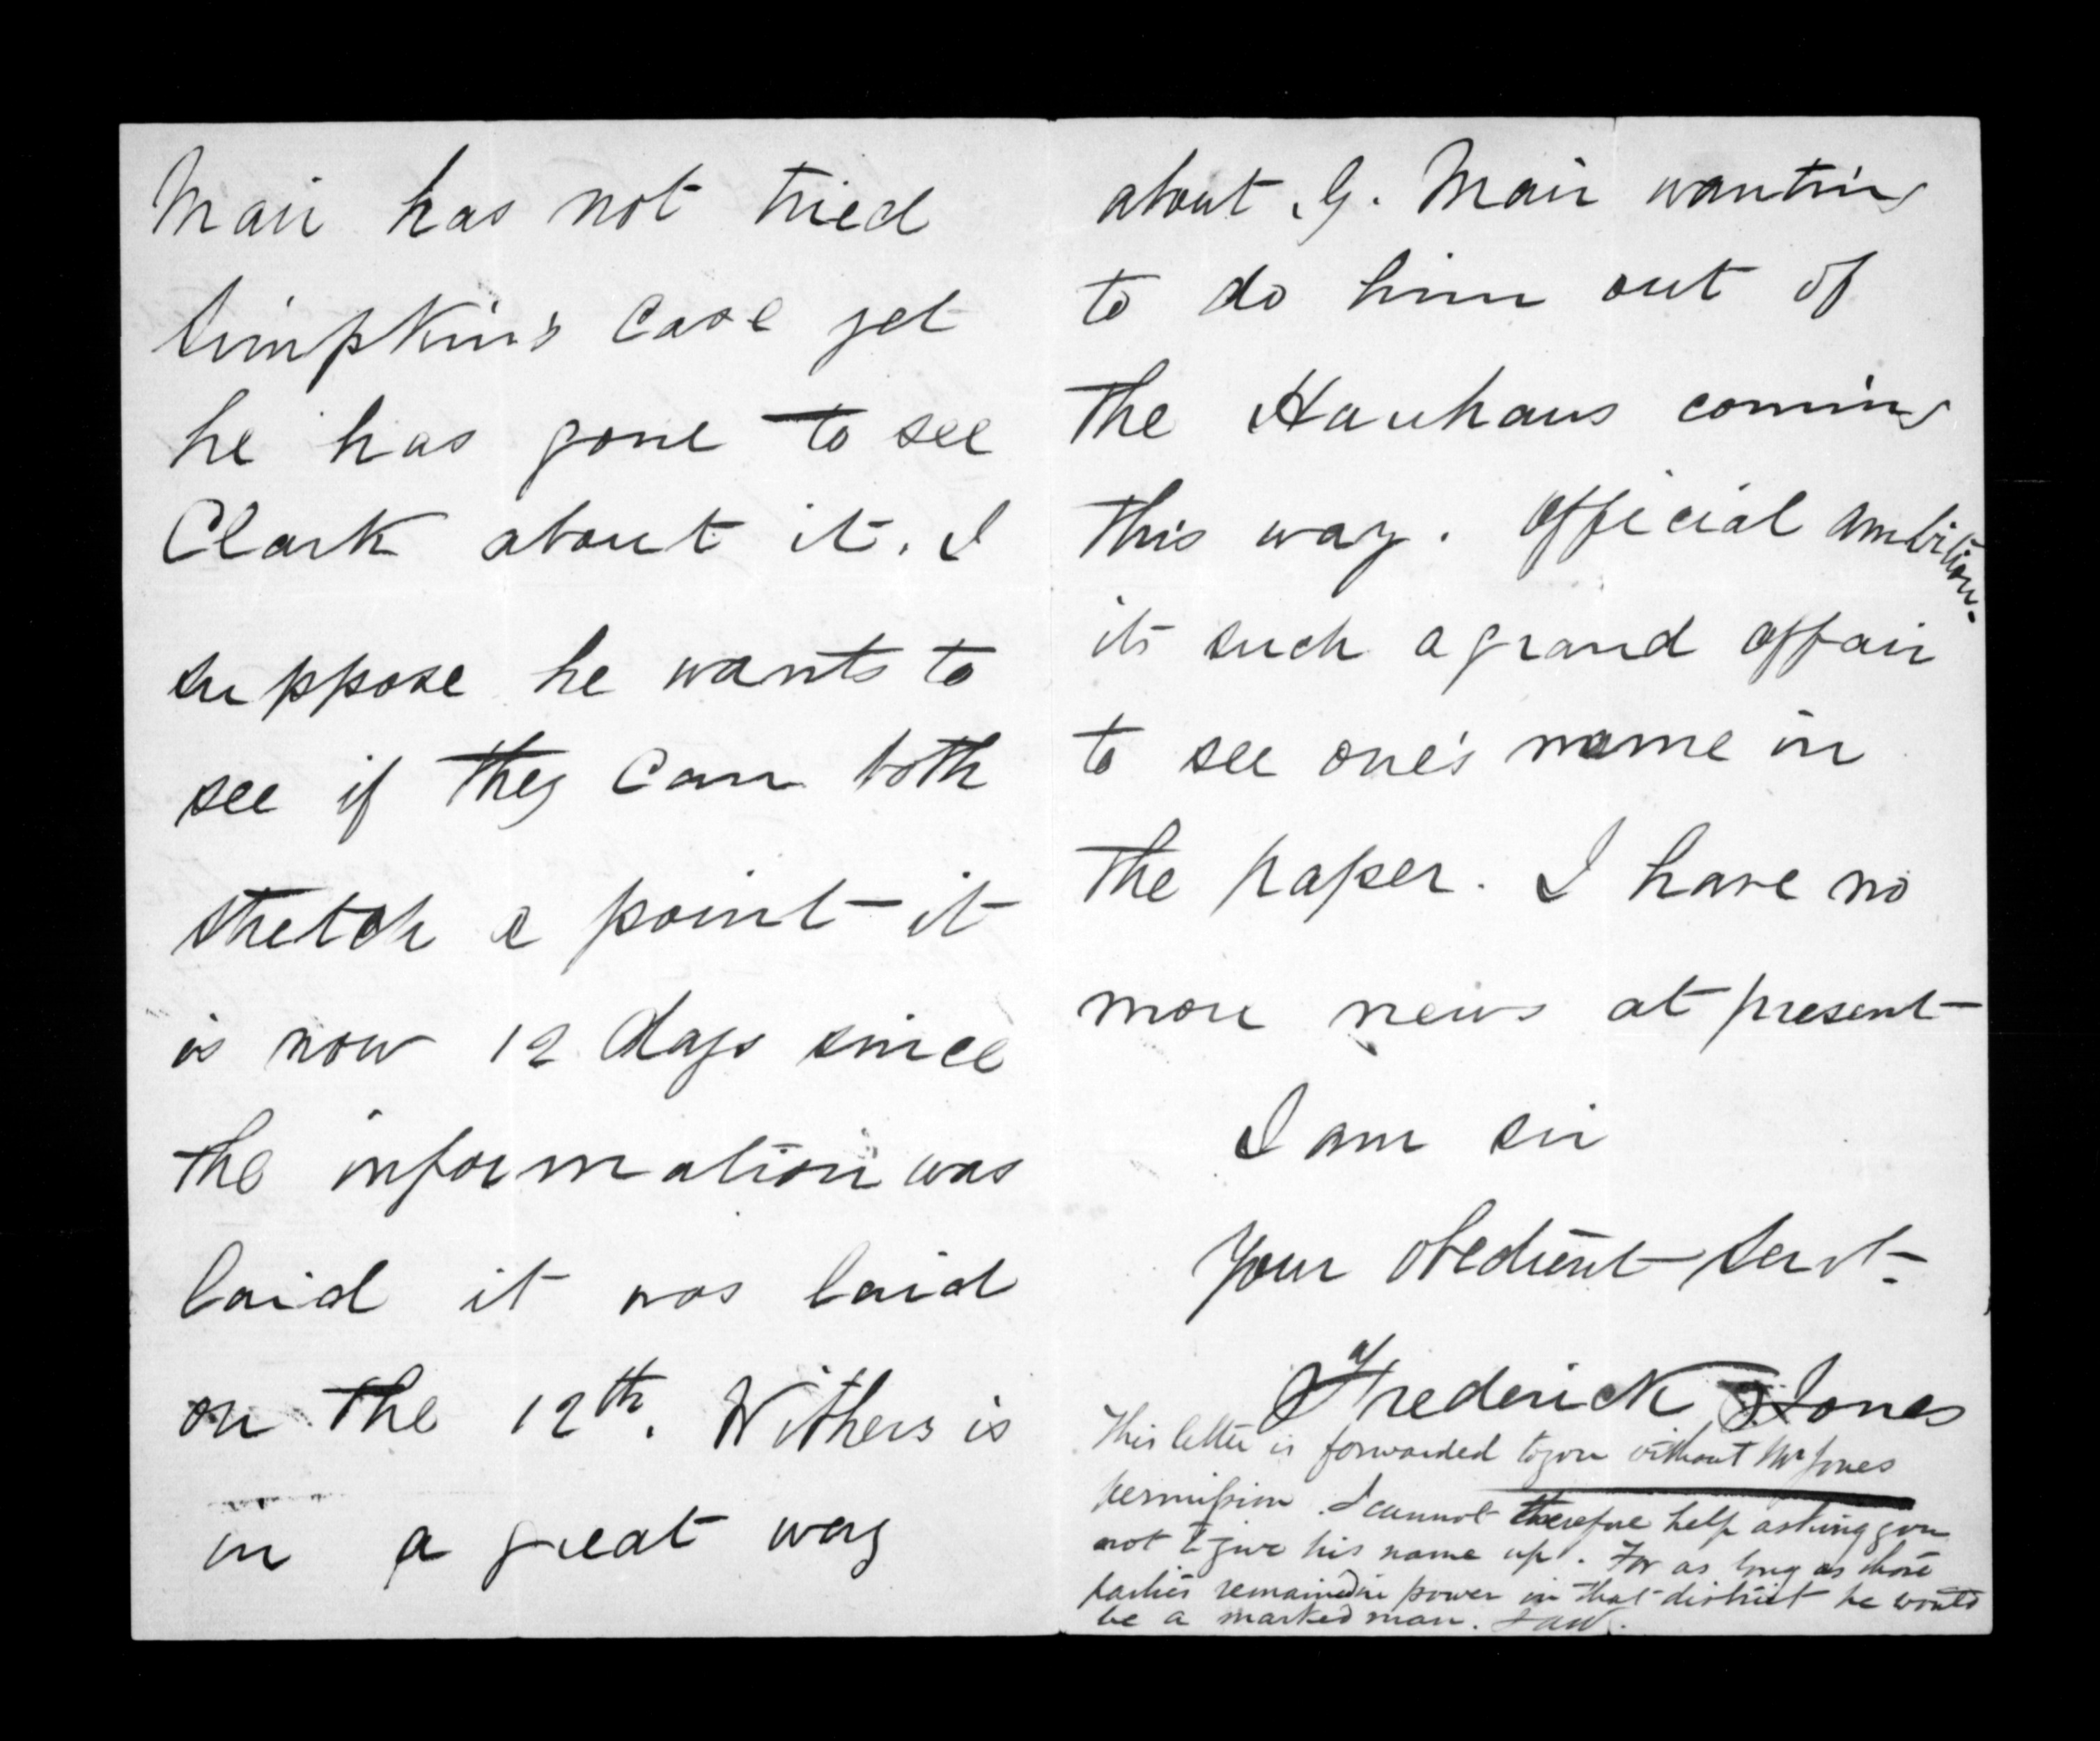 Mair has not tried
Simpkin's case yet
he has gone to see
Clark about it. I
suppose he wants to
see if they can both
stretch a point it
is now 12 days since
the information was
laid it was laid
on the 12th. Withers is
in a great way
about G. Mair wanting
to do him out of
the Hauhaus coming
this way. Official ambition.
its such a grand affair
to see one's name in
the paper. I have no
more news at present
I am sir
Your obedient Servt.
Frederick Jones
This letter is forwarded to you without Mr Jones
permission. I cannot therefore help asking you
not to give his name up. For as long as those
parties remained in power in that district he would
be a marked man.